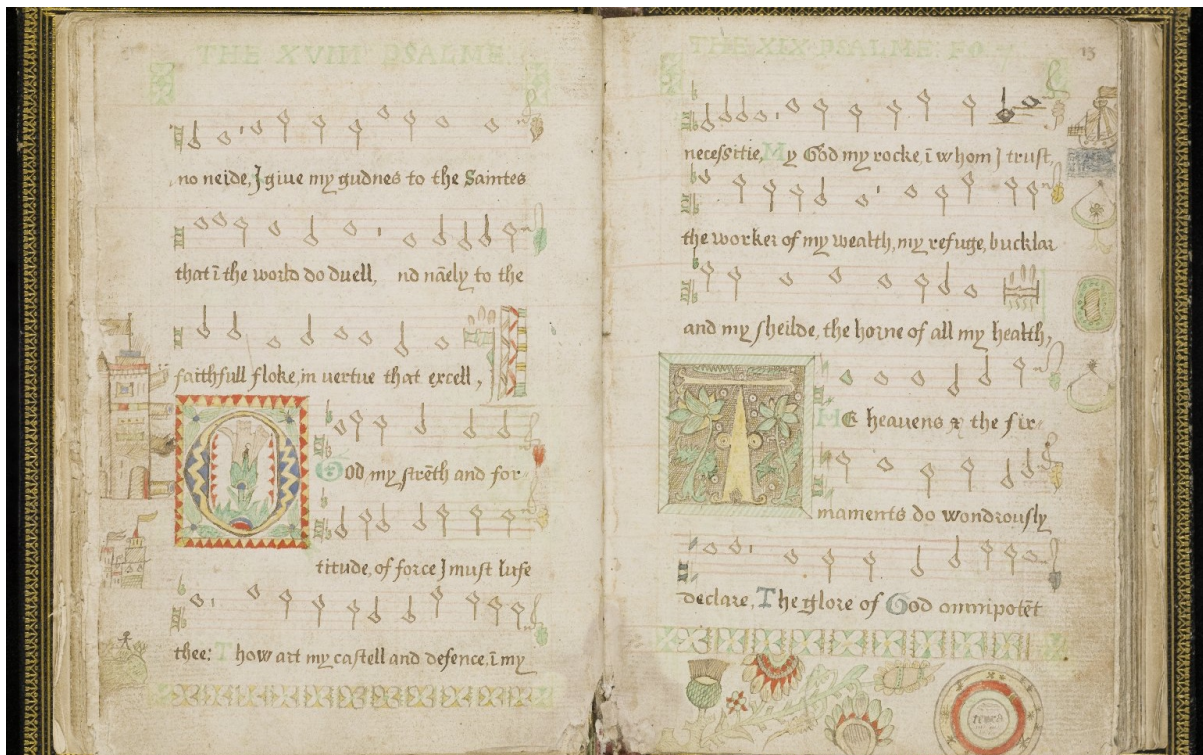 THE XVIII PSALME
no neide, I giue my gudnes to the Saintes
that ī the world do duell, no nāely to the
faithfull floke, in uertue that excell,
O
God my strēth and for
titude, of force I must lufe
thee: Thow art my castell and defence, ī my
THE XIX PSALME FO
13
necessitie, My God my rocke, ī whom I trust,
the worker of my wealth, my refuge, bucklar
and my sheilde, the horne of all my health,
T
HE heauens & the fir
maments do wondrously
declare, The glore of God omnipotēt